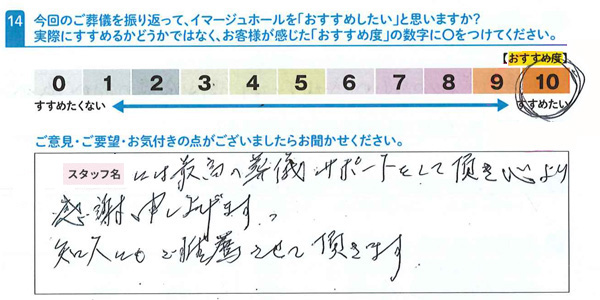 14 今回のご葬儀を振り返って、イマージュホールを「おすすめしたい」と思いますか?
実際にすすめるかどうかではなく、お客様が感じた「おすすめ度」の数字に○をつけてください。
【おすすめ度】
0 1 2 3 4 5 6 7 8 9 10
すすめたくない すすめたい
ご意見・ご要望・お気付きの点がございましたらお聞かせください。
スタッフ名 には最高の葬儀サポートをして頂き心より
感謝申し上げます。
知人にもご推薦させて頂きます